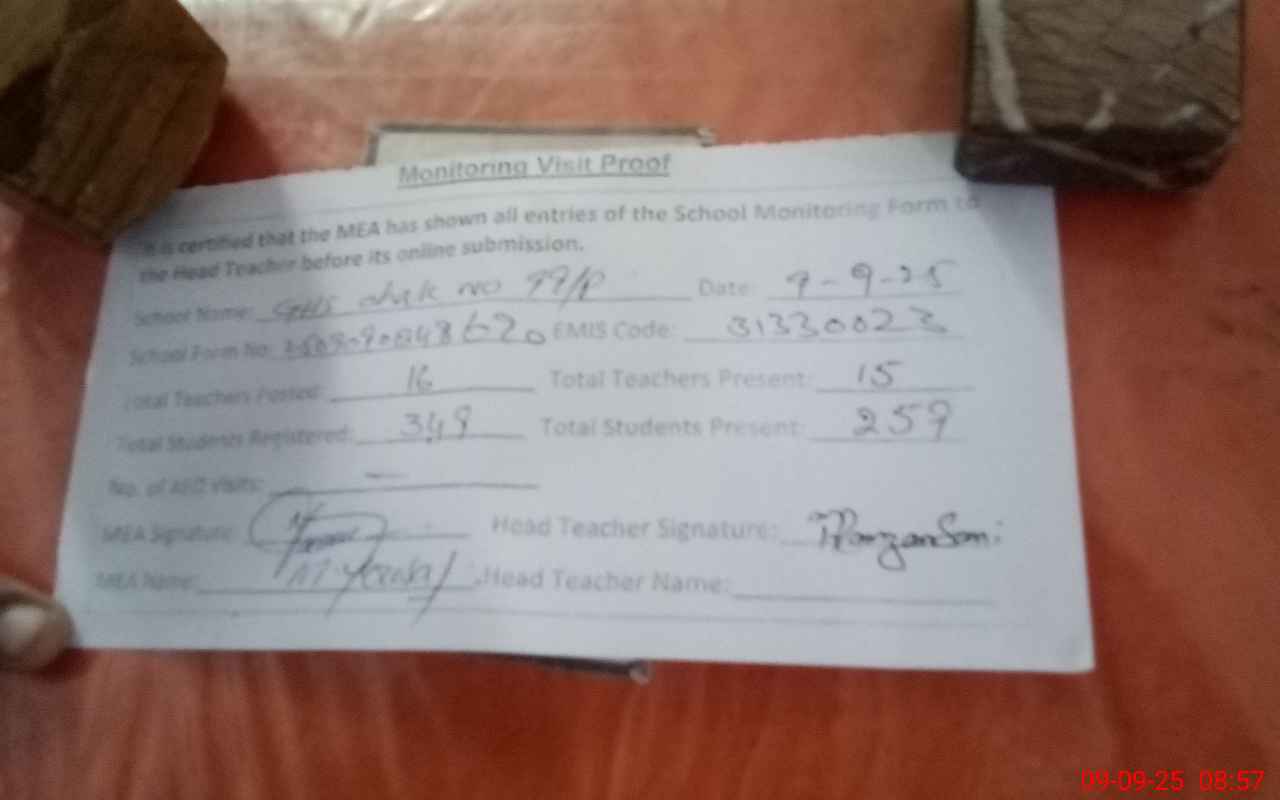 Monitoring Visit Proof
It is certified that the MEA has shown all entries of the School Monitoring Form to
the Head Teacher before its online submission.
School Name: GHS chak no 99/P Date: 9-9-25
School Form No: EMIS Code: 31330023
Total Teachers Posted: 16 Total Teachers Present: 15
Total Students Registered: 349 Total Students Present: 259
No. of AEO Visits: —
MEA Signature: Head Teacher Signature:
MEA Name: Head Teacher Name:
09-09-25 08:57